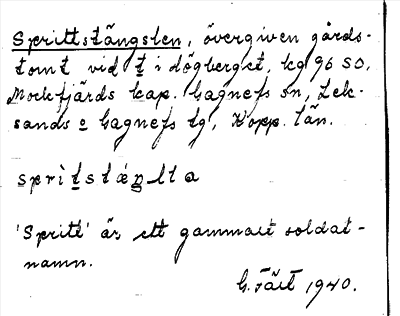 Sprittstängslen, övergiven gårds-
tomt vid t i dögberget, kg 96 SO,
Mockfjärds kap. Gagnefs sn, Lek-
sands o Gagnefs tg, Kopp. län.
sprìtstæŋlta
'Spritt' är ett gammalt soldat-
namn.
G. Fält 1940.